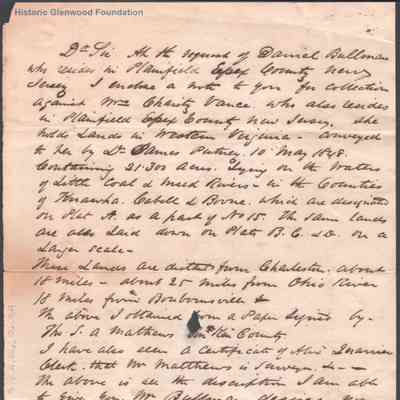 Historic Glenwood Foundation
Dr Sir At the request of Daniel Bullman
who resides in Plainfield Essex County New
Jersey I enclose a note to you for collection
against Mrs Charity Vance who also resides
in Plainfield Essex County New Jersey, she
holds Lands in Western Virginia - conveyed
to her by Dr James Putney 10 May 1848.
Containing 21.300 Acres. Lying on the Waters
of Little Coal & Mud Rivers - in the Counties
of Kanawha. Cabell & Boone. which are designated
on Plat A. as a part of No 15. The same lands
are also laid down on Plats B. C. & D. on a
Larger scale -
These Lands are distant from Charleston about
18 miles - about 25 miles from Ohio River
18 miles from &
The above I obtained from a Paper signed by -
Th. S. A Mathews County
I have also seen a certificate of Alex Quarrier
Clerk. that Mr Matthews is Surveyor. &c -
The above is all the description I am able
to give you. Mr Bullman desires you